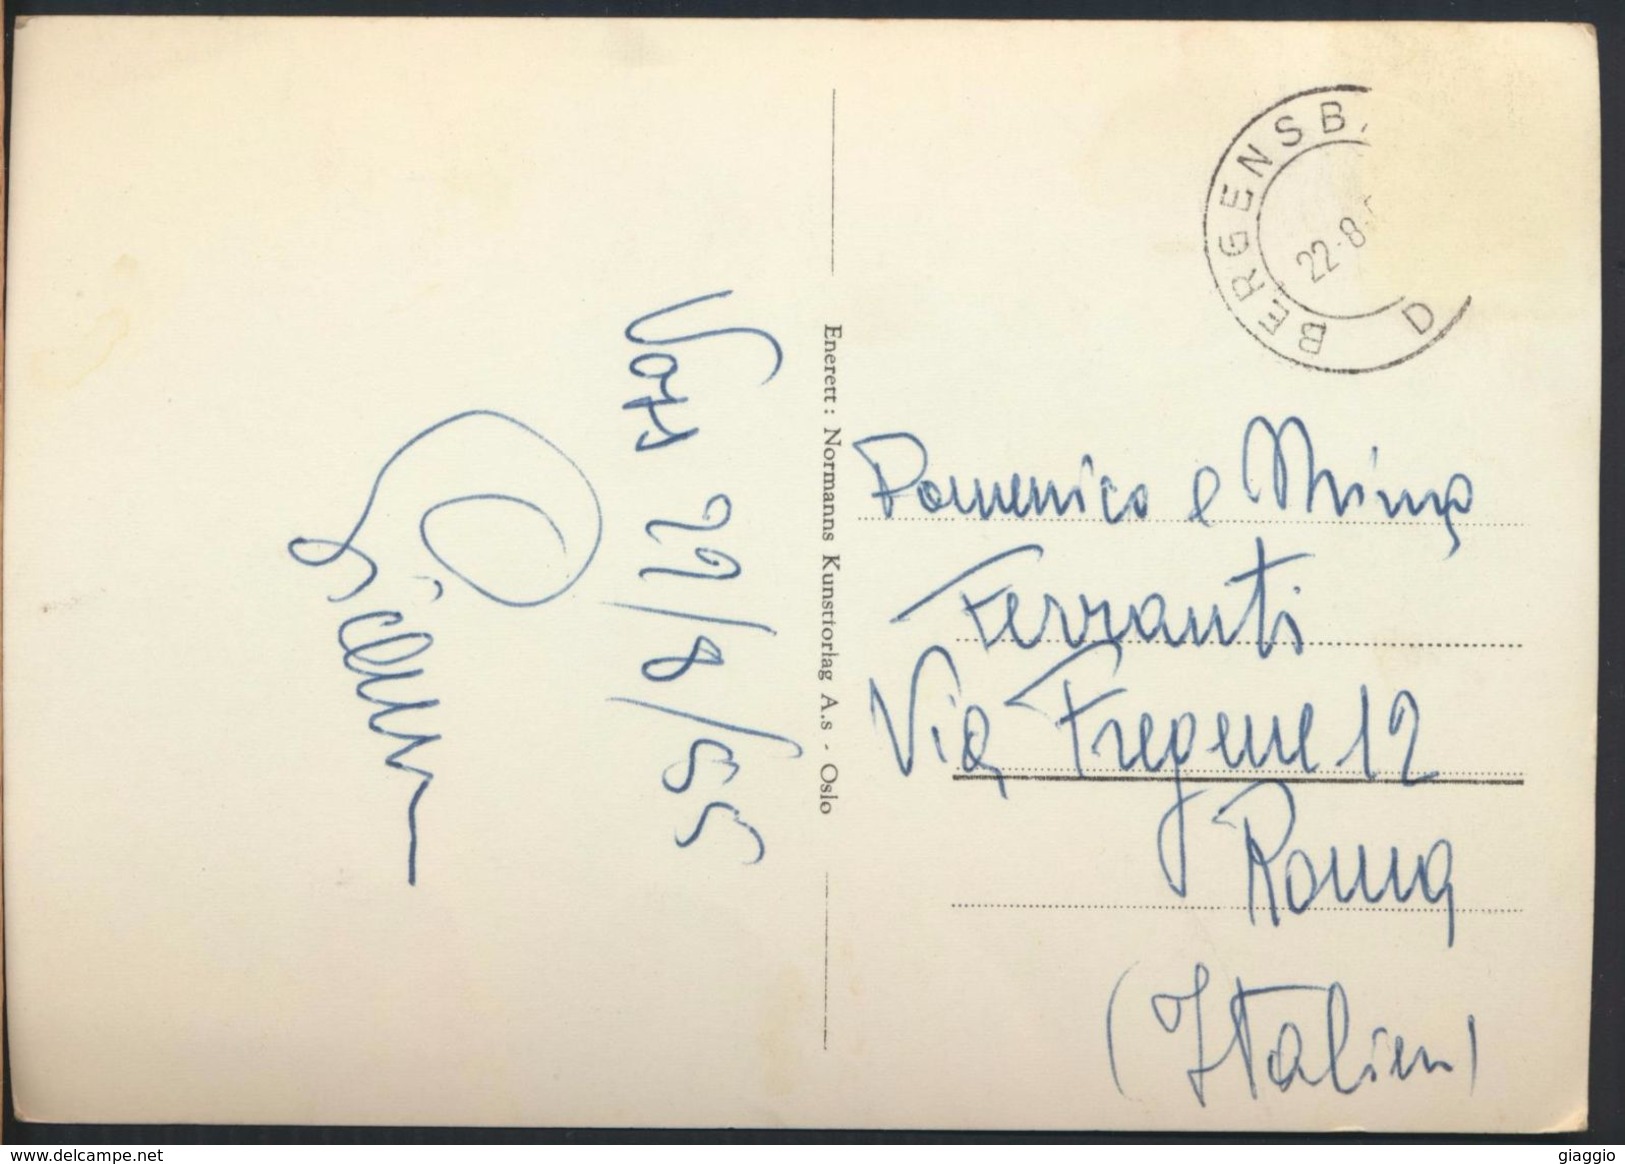 Voss 22/8/55
Enerett: Normanns Kunstforlag A.s - Oslo
BERGENSB
22-8
D
Domenico e Mimma
Ferranti
Via Fregene 12
Roma
(Italien)
www.delcampe.net
giaggio